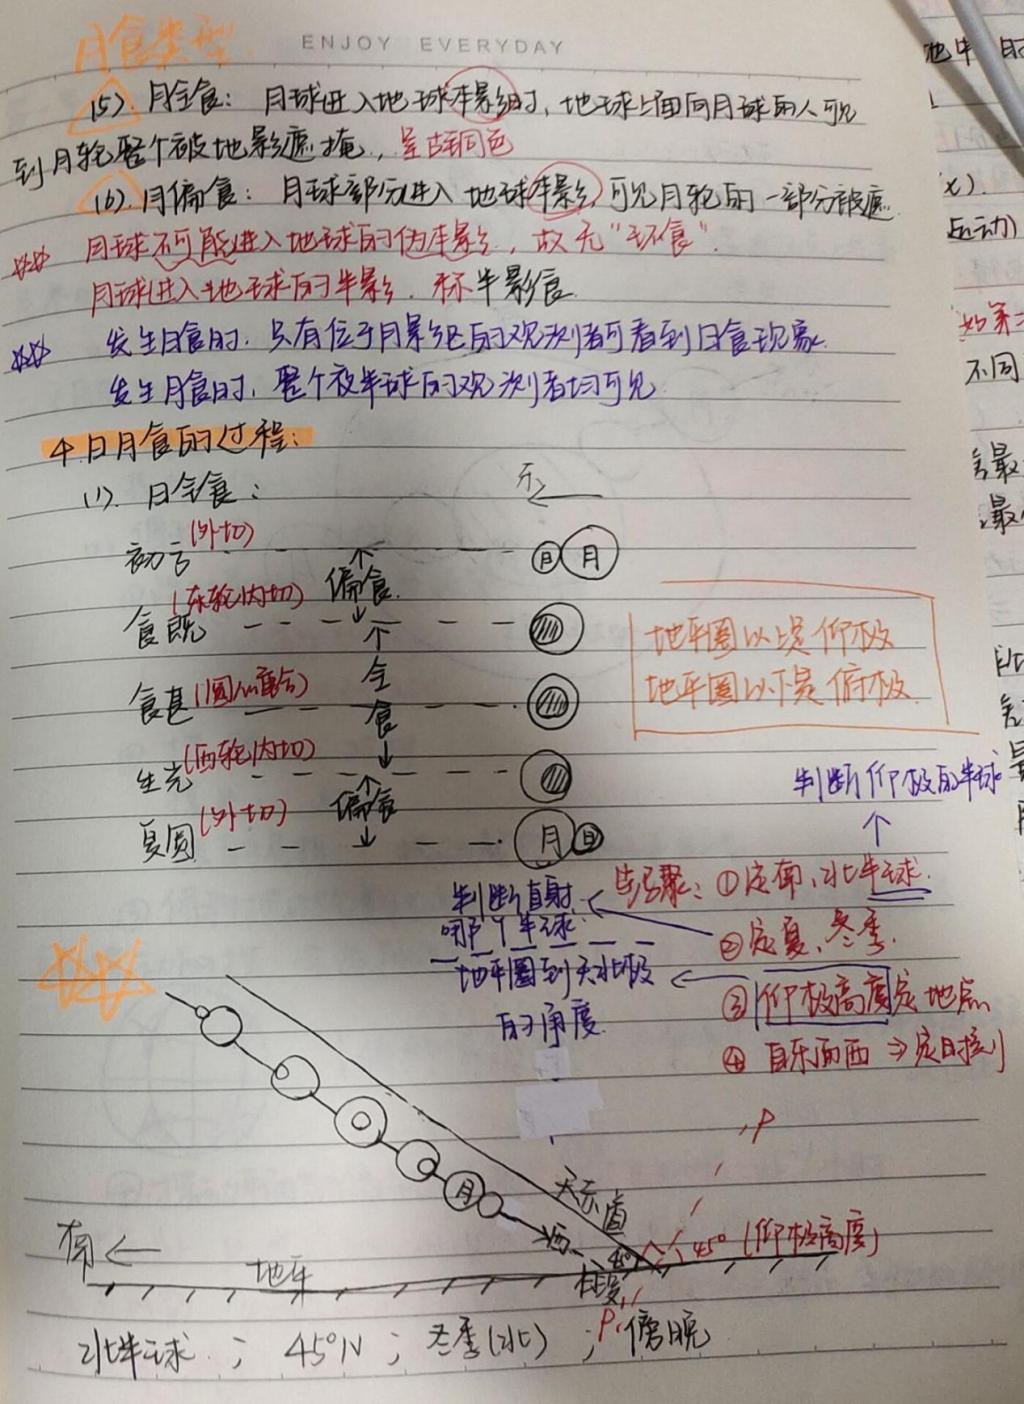 月食类型
ENJOY EVERYDAY
(5). 月全食: 月球进入地球本影时, 地球上面向月球的人可见
到月轮整个被地影遮掩, 呈古铜色
(6). 月偏食: 月球部分进入地球本影, 可见月轮的一部分被遮
月球不可能进入地球的伪本影, 故无“环食”.
月球进入地球的半影, 称半影食.
发生日食时, 只有位于月影区的观测者可看到日食现象.
发生月食时, 整个夜半球的观测者均可见.
4. 日月食的过程:
(1). 日全食:
东
初亏(外切) 偏食 日 月
食既(东轮内切)
食甚(圆心重合) 全食
生光(西轮内切)
复圆(外切) 偏食 月 日
地平圈以上是仰极
地平圈以下是俯极
判断仰极的半球
步骤: ①定南、北半球.
判断直射哪个半球
②定夏、冬季.
地平圈到天北极的角度.
③仰极高度定地点
④自东向西 ⇒ 定时刻
P
月
天赤道
西
南
地平
45°
45° (仰极高度)
P
北半球 ; 45°N ; 冬季(北) ; 傍晚
地平
x).
运动)
不同